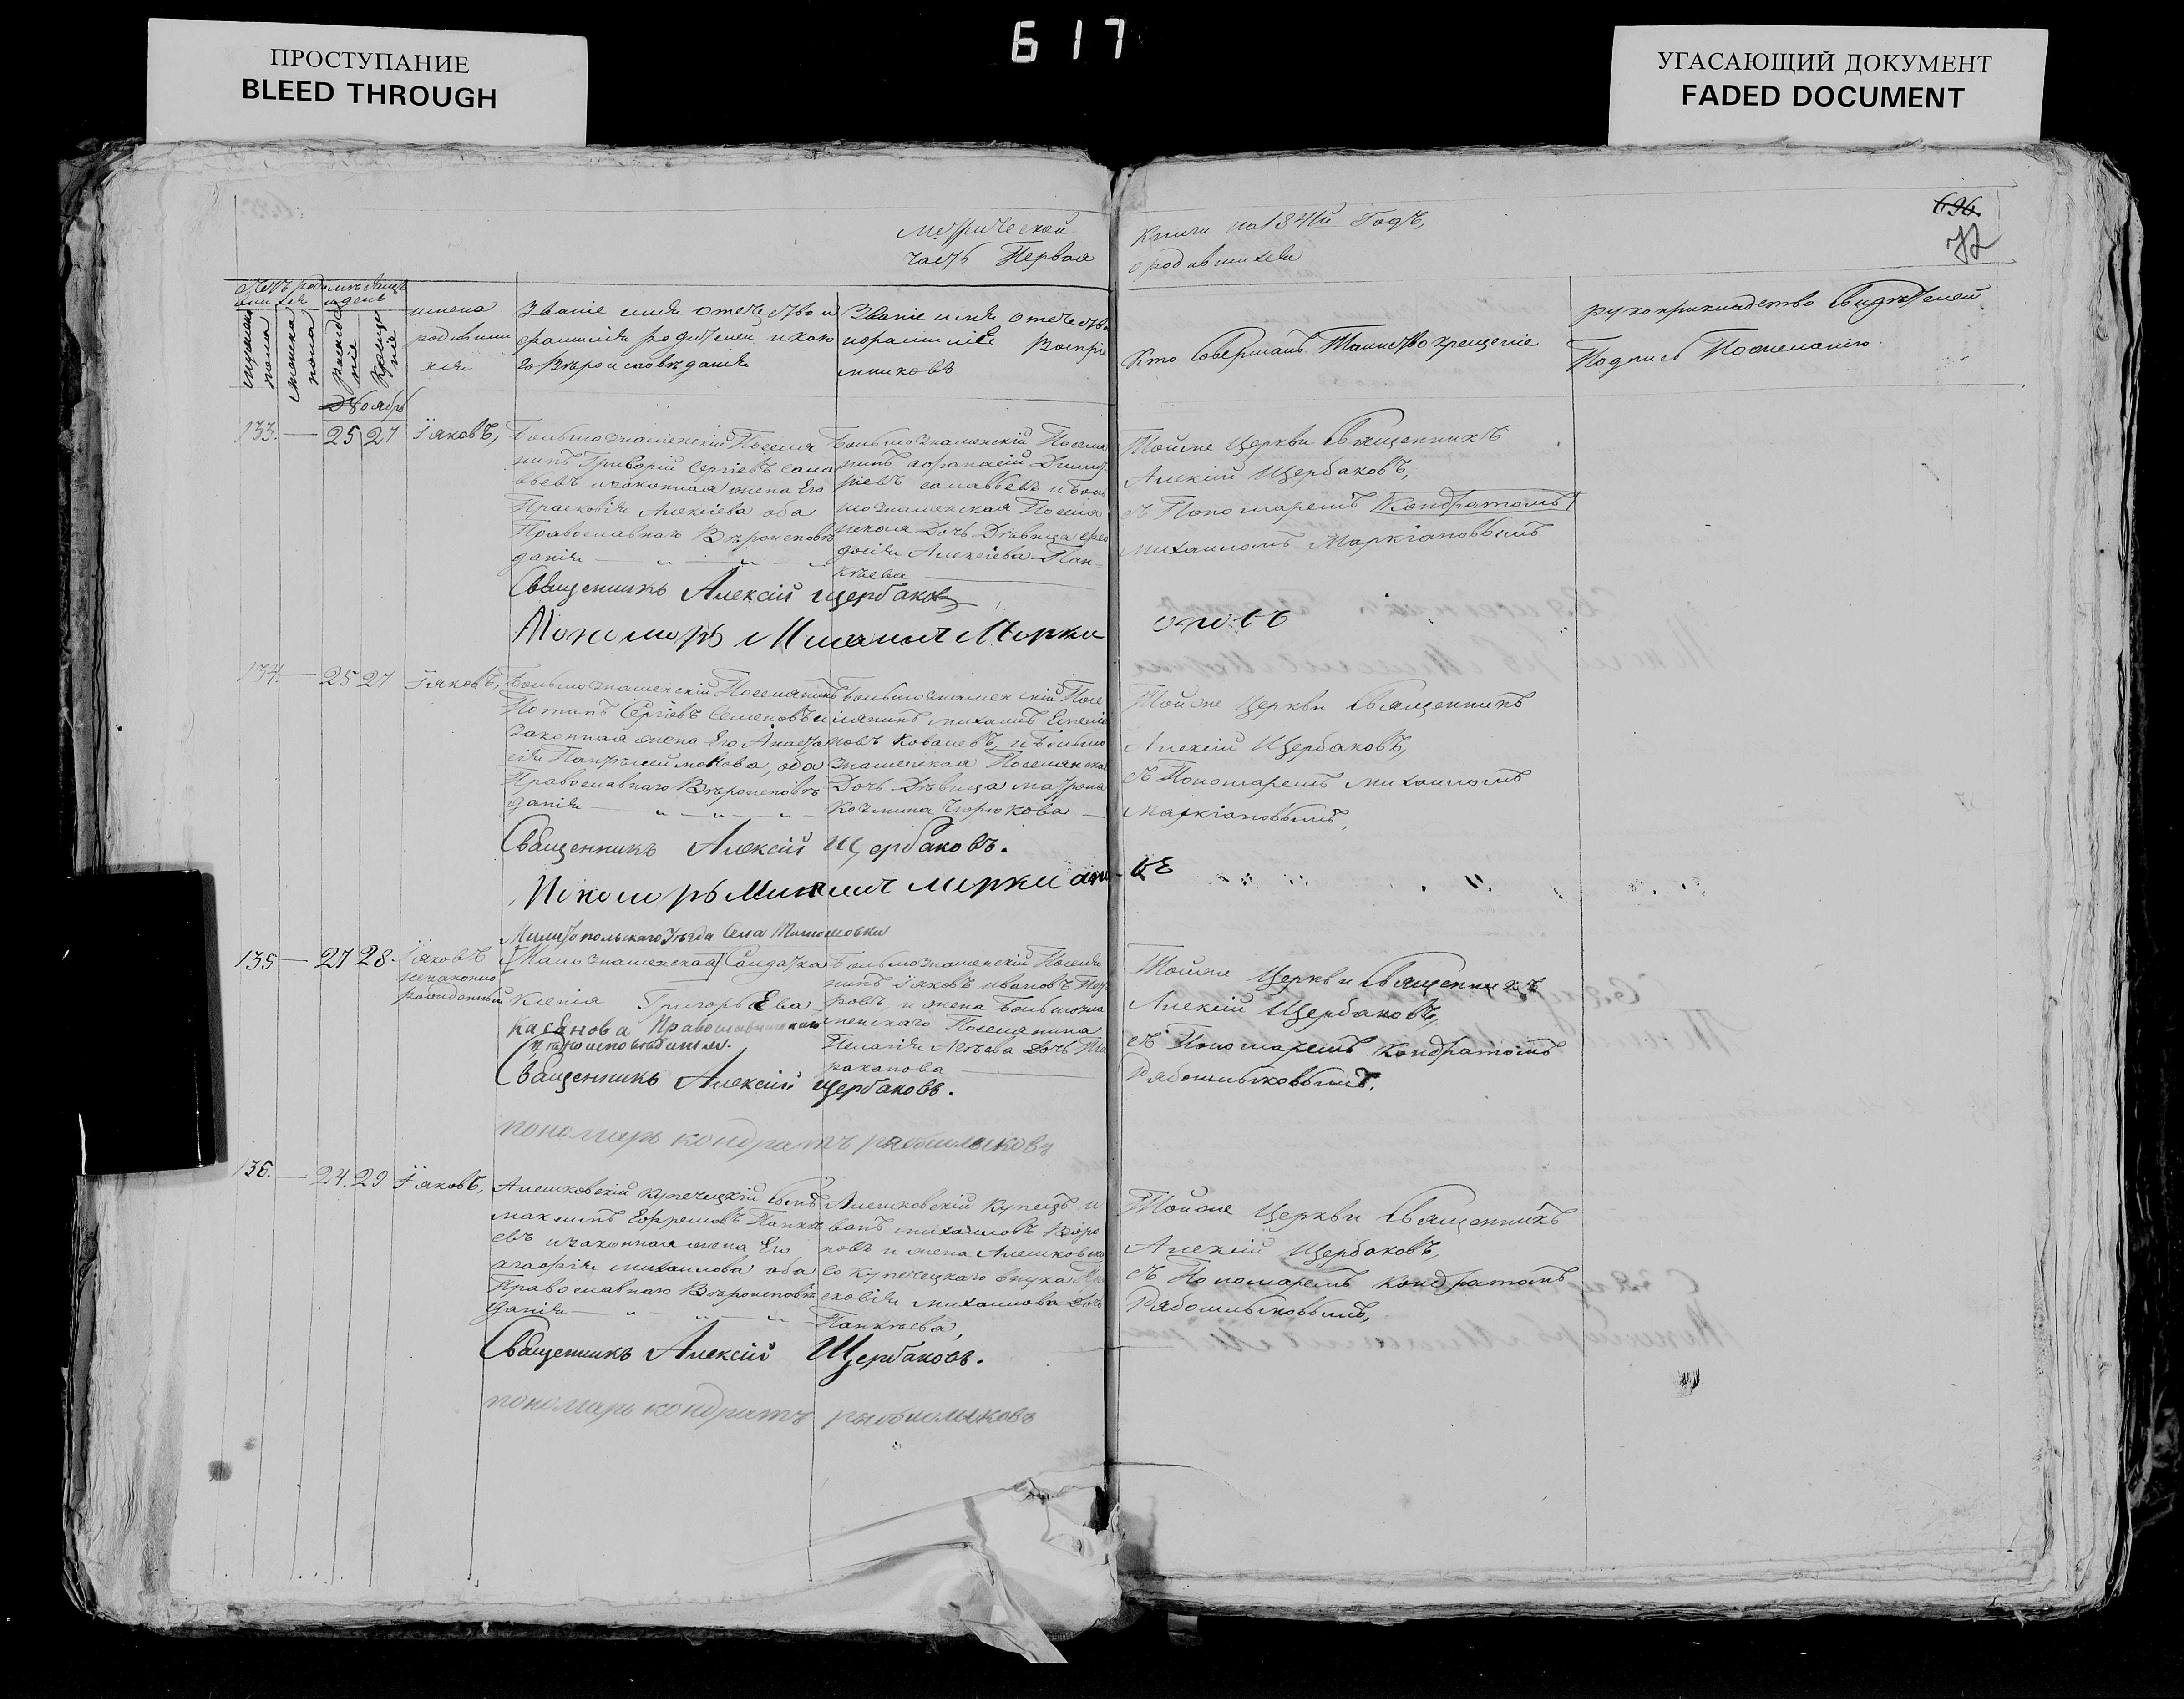 617
ПРОСТУПАНИЕ
BLEED THROUGH
УГАСАЮЩИЙ ДОКУМЕНТ
FADED DOCUMENT
696
72
Метрической
Книги на 1841й Годъ,
часть Первая
о родившихся
имена
родивши
хся
Званіе имя отечество и
фамилія родителей и како
го Вѣроисповѣданія
Званіе имя отечество
и фамилія Воспріе
мниковъ
Кто Совершалъ Таинство крещеніе
рукоприкладство Свидѣтелей
Подпись По желанію
мужеска пола
женска пола
рожденіе
Крещеніе
Ноябрь
133. — 25 27 Іяковъ,
Большознаменскій Поселя
нинъ Григорій Сергіевъ Сола
вьевъ и законная жена Его
Прасковія Алексіева оба
Православнаго Вѣроисповѣ
данія — " — " — "
Большознаменскій Поселя
нинъ Афанасій Димит
ріевъ солавьевъ и Боль
шознаменская Поселя
нская Дочь Дѣвица Фео
досія Алексіева Пан-
кѣева
Тойже Церкви Священникъ
Алексій Щербаковъ,
съ Пономаремъ Кондратомъ
михаиломъ Маркіановымъ
Священникъ Алексій Щербаковъ
Пономарь Михаилъ Марки
ановъ
134. — 25 27 Іяковъ,
Большознаменскій Поселянинъ
Потапъ Сергіевъ Семеновъ и
Законная жена Его Анаста
сія Пантѣлеймонова, оба
Православнаго Вѣроисповѣ
данія — " — " — "
Большознаменскій Посе
лянинъ михаилъ
новъ Ковалевъ, и Большо
знаменская Поселянская
Дочь Дѣвица матрона
Козмина Чюрюкова
Тойже Церкви Священникъ
Алексій Щербаковъ,
съ Пономаремъ михаиломъ
маркіановымъ,
Священникъ Алексій Щербаковъ.
Пономарь Михаилъ Маркиано
въ
Милитопольскаго Уѣзда Села Тимошовки
135 — 27 28. Іяковъ
незаконно
рожденный
Малознаменская Солдатка
Ксенія ГригорьЕва
Касѣнова Православнаго
Вѣроисповѣданія.
Большознаменскій Поселя
нинъ Іяковъ ивановъ
ровъ, и жена Большозна
менскаго Поселянина
Пелагія дочь Та
раканова
Тойже Церкви Священникъ
Алексій Щербаковъ,
съ Пономаремъ Кондратомъ
Рябошлыковымъ.
Священникъ Алексій Щербаковъ.
пономарь кондратъ рябошлыковъ
136. — 24. 29 Іяковъ,
Алешковскій купеческій сынъ
максимъ Ефремовъ Панкѣ
евъ и законная жена Его
агафія михаилова оба
Православнаго Вѣроисповѣ
данія — " — " — "
Алешковскій Купецъ и
ванъ михаиловъ Воро
новъ и жена Алешковска
го купеческаго внука Пра
сковія михаилова дочь
Панкѣева,
Тойже Церкви Священникъ
Алексій Щербаковъ,
съ Пономаремъ кондратомъ
Рябошлыковымъ,
Священникъ Алексій Щербаковъ.
пономарь кондратъ рябошлыковъ